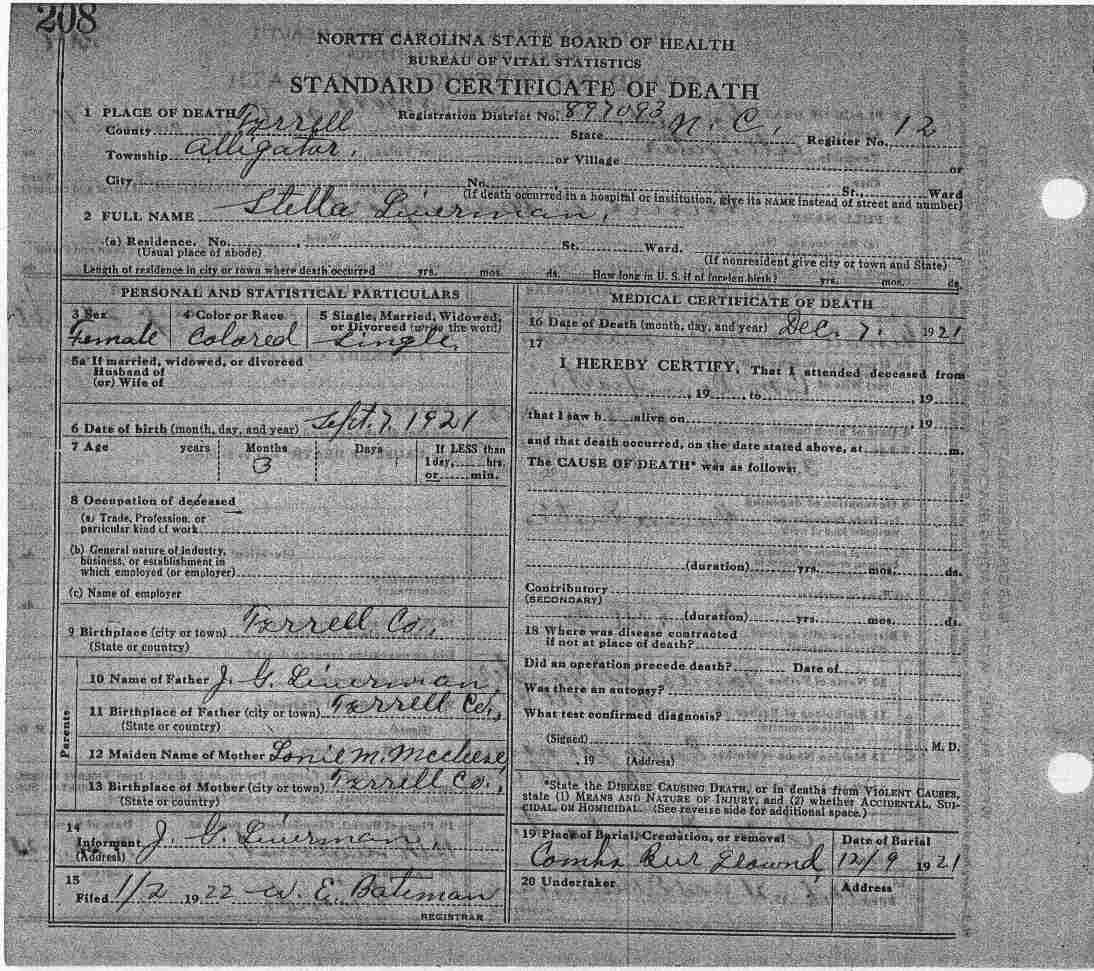 208
NORTH CAROLINA STATE BOARD OF HEALTH
BUREAU OF VITAL STATISTICS
STANDARD CERTIFICATE OF DEATH
1 PLACE OF DEATH Registration District No. 897093 Register No. 12
County Tyrrell State N. C.
Township Alligator. or Village or
City No. St., Ward
(If death occurred in a hospital or institution, give its NAME instead of street and number)
2 FULL NAME Stella Liverman.
(a) Residence, No. St. Ward.
(Usual place of abode) (If nonresident give city or town and State)
Length of residence in city or town where death occurred yrs. mos. ds. How long in U. S. if of foreign birth? yrs. mos. ds.
PERSONAL AND STATISTICAL PARTICULARS
3 Sex 4 Color or Race 5 Single, Married, Widowed, or Divorced (write the word)
Female Colored Single.
5a If married, widowed, or divorced
Husband of
(or) Wife of
6 Date of birth (month, day, and year) Sept. 7. 1921
7 Age years Months Days If LESS than
3 1 day, hrs.
or min.
8 Occupation of deceased
(a) Trade, Profession, or
particular kind of work
(b) General nature of industry,
business, or establishment in
which employed (or employer)
(c) Name of employer
9 Birthplace (city or town) Tyrrell Co.,
(State or country)
Parents
10 Name of Father J. G. Liverman
11 Birthplace of Father (city or town) Tyrrell Co.,
(State or country)
12 Maiden Name of Mother Lonie M. Mccleese
13 Birthplace of Mother (city or town) Tyrrell Co.,
(State or country)
14
Informant J. G. Liverman,
(Address)
15
Filed 1/2 1922 W. E. Bateman
REGISTRAR
MEDICAL CERTIFICATE OF DEATH
16 Date of Death (month, day, and year) Dec. 7. 1921
17
I HEREBY CERTIFY, That I attended deceased from
, 19 , to , 19
that I saw h alive on , 19
and that death occurred, on the date stated above, at m.
The CAUSE OF DEATH* was as follows:
(duration) yrs. mos. ds.
Contributory
(SECONDARY)
(duration) yrs. mos. ds.
18 Where was disease contracted
if not at place of death?
Did an operation precede death? Date of
Was there an autopsy?
What test confirmed diagnosis?
(Signed) , M. D.
, 19 (Address)
*State the DISEASE CAUSING DEATH, or in deaths from VIOLENT CAUSES,
state (1) MEANS AND NATURE OF INJURY, and (2) whether ACCIDENTAL, SUI-
CIDAL, OR HOMICIDAL. (See reverse side for additional space.)
19 Place of Burial, Cremation, or removal Date of Burial
Combs Bur Ground, 12/9 1921
20 Undertaker Address